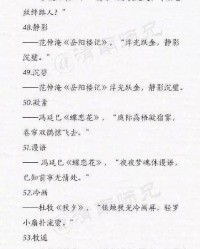 丝绊路人？”
48.静影
——范仲淹《岳阳楼记》，“浮光跃金，静影
沉璧。”
49.沉璧
——范仲淹《岳阳楼记》浮光跃金，静影沉璧。
50.凝素
——冯延巳《蝶恋花》，“莫作高梧凝宿雾，
卷帘双鹊惊飞去。”
51.漫语
——冯延巳《蝶恋花》，“夜夜梦魂休漫语，
已知前事无情处。”
52.冷画
——杜牧《秋夕》，“银烛秋光冷画屏，轻罗
小扇扑流萤。”
53.牧遥